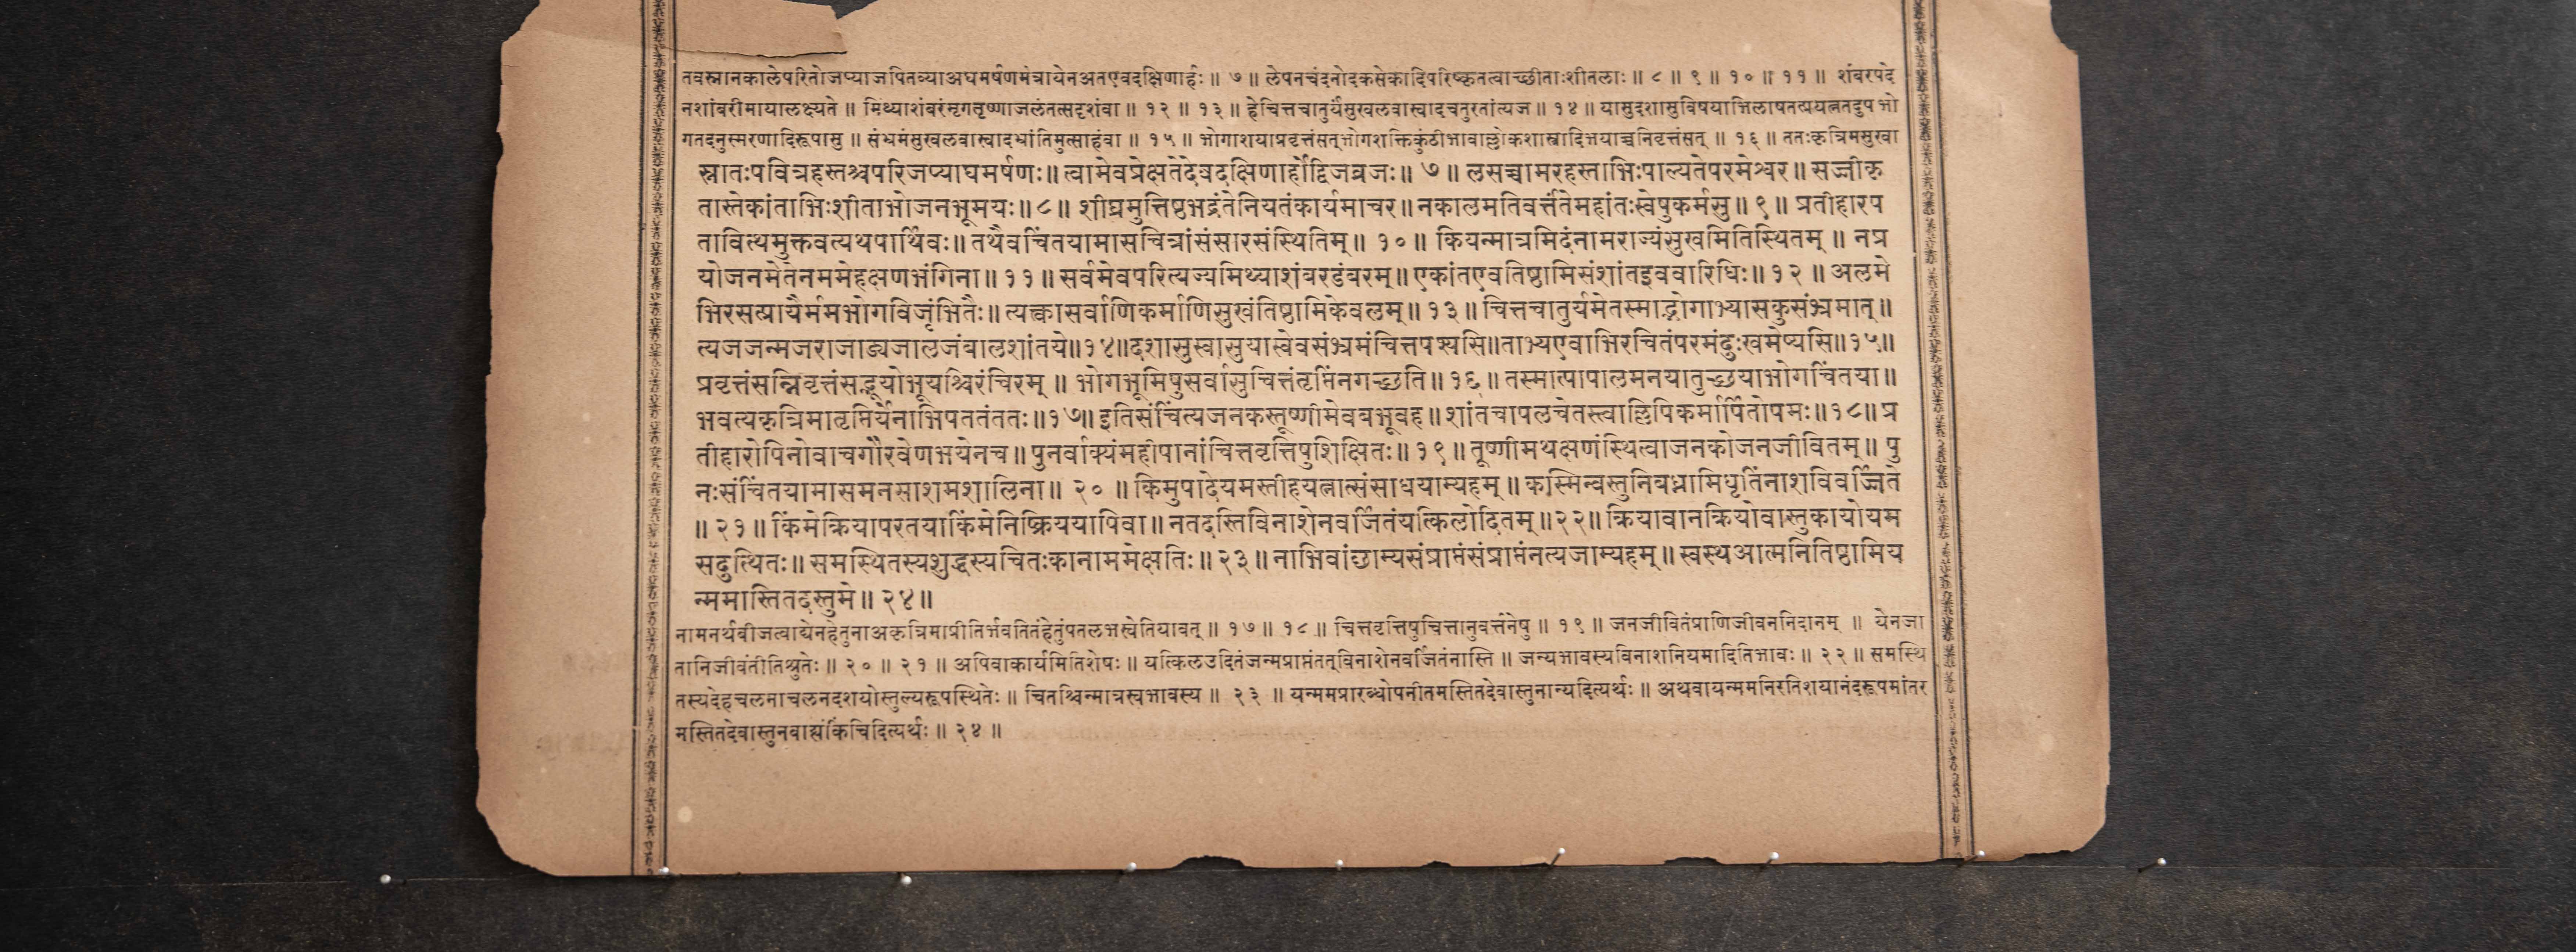 तवस्नानकालेपरितोजप्याजपितव्याअघमर्षणमंत्रायेनअतएवदक्षिणार्हः ॥ ७ ॥ लेपनचंदनोदकसेकादिपरिष्कृतत्वाच्छीताःशीतलाः ॥ ८ ॥ ९ ॥ १० ॥ ११ ॥ शंबरपदे
नशांबरीमायालक्ष्यते ॥ मिथ्याशंबरंमृगतृष्णाजलंतत्सदृशंवा ॥ १२ ॥ १३ ॥ हेचित्तचातुर्यंसुखलवास्वादचतुरतांत्यज ॥ १४ ॥ यासुदशासुविषयाभिलाषतत्प्रयत्नतदुपभो
गतदनुस्मरणादिरूपासु ॥ संभ्रमंसुखलवास्वादभ्रांतिमुत्साहंवा ॥ १५ ॥ भोगाशयाप्रवृत्तंसत्भोगशक्तिकुंठीभावाल्लोकशास्त्रादिभयाच्चनिवृत्तंसत् ॥ १६ ॥ ततःकृत्रिमसुखा
स्नातःपवित्रहस्तश्चपरिजप्याघमर्षणः॥ त्वामेवप्रेक्षतेदेवदक्षिणार्होद्विजव्रजः॥ ७ ॥ लसच्चामरहस्ताभिःपाल्यतेपरमेश्वर ॥ सज्जीकृ
तास्तेकांताभिःशीताभोजनभूमयः॥ ८ ॥ शीघ्रमुत्तिष्ठभद्रंतेनियतंकार्यमाचर ॥ नकालमतिवर्त्तंतेमहांतःस्वेषुकर्मसु ॥ ९ ॥ प्रतीहारप
तावित्थमुक्तवत्यथपार्थिवः॥ तथैवचिंतयामासचित्रांसंसारसंस्थितिम् ॥ १० ॥ कियन्मात्रमिदंनामराज्यंसुखमितिस्थितम् ॥ नप्र
योजनमेतेनममेहक्षणभंगिना ॥ ११ ॥ सर्वमेवपरित्यज्यमिथ्याशंबरडंबरम् ॥ एकांतएवतिष्ठामिसंशांतइववारिधिः॥ १२ ॥ अलमे
भिरसत्प्रायैर्ममभोगविजृंभितैः॥ त्यक्त्वासर्वाणिकर्माणिसुखंतिष्ठामिकेवलम् ॥ १३ ॥ चित्तचातुर्यमेतस्माद्भोगाभ्यासकुसंभ्रमात् ॥
त्यजजन्मजराजाड्यजालजंबालशांतये॥१४॥दशासुस्वासुयास्वेवसंभ्रमंचित्तपश्यसि॥ताभ्यएवाभिरचितंपरमंदुःखमेष्यसि॥१५॥
प्रवृत्तंसन्निवृत्तंसद्भूयोभूयश्चिरंचिरम् ॥ भोगभूमिषुसर्वासुचित्तंतृप्तिंनगच्छति ॥ १६ ॥ तस्मात्पापालमनयातुच्छयाभोगचिंतया ॥
भवत्यकृत्रिमातृप्तिर्येनाभिपततंततः॥१७॥ इतिसंचिंत्यजनकस्तूष्णीमेवबभूवह॥ शांतचापलचेतस्त्वाल्लिपिकर्मार्पितोपमः॥१८॥ प्र
तीहारोपिनोवाचगौरवेणभयेनच ॥ पुनर्वाक्यंमहीपानांचित्तवृत्तिषुशिक्षितः॥ १९ ॥ तूष्णीमथक्षणंस्थित्वाजनकोजनजीवितम् ॥ पु
नःसंचिंतयामासमनसाशमशालिना ॥ २० ॥ किमुपादेयमस्तीहयत्नात्संसाधयाम्यहम् ॥ कस्मिन्वस्तुनिबध्नामिधृतिंनाशविवर्ज्जिते
॥ २१ ॥ किंमेक्रियापरतयाकिंमेनिष्क्रिययापिवा॥ नतदस्तिविनाशेनवर्जितंयत्किलोदितम् ॥ २२ ॥ क्रियावानक्रियोवास्तुकायोयम
सदुत्थितः॥ समस्थितस्यशुद्धस्यचितःकानाममेक्षतिः॥ २३ ॥ नाभिवांछाम्यसंप्राप्तंसंप्राप्तंनत्यजाम्यहम् ॥ स्वस्थआत्मनितिष्ठामिय
न्ममास्तितदस्तुमे॥ २४ ॥
नामनर्थबीजत्वाद्येनहेतुनाअकृत्रिमाप्रीतिर्भवतितंहेतुंपतलभस्वेतियावत् ॥ १७ ॥ १८ ॥ चित्तवृत्तिषुचित्तानुवर्त्तनेषु ॥ १९ ॥ जनजीवितंप्राणिजीवननिदानम् ॥ येनजा
तानिजीवंतीतिश्रुतेः ॥ २० ॥ २१ ॥ अपिवाकार्यमितिशेषः ॥ यत्किलउदितंजन्मप्राप्तंतत्विनाशेनवर्जितंनास्ति ॥ जन्यभावस्यविनाशनियमादितिभावः ॥ २२ ॥ समस्थि
तस्यदेहचलनाचलनदशयोस्तुल्यरूपस्थितेः ॥ चितश्चिन्मात्रस्वभावस्य ॥ २३ ॥ यन्ममप्रारब्धोपनीतमस्तितदेवास्तुनान्यदित्यर्थः ॥ अथवायन्ममनिरतिशयानंदरूपमांतर
मस्तितदेवास्तुनबाह्यंकिंचिदित्यर्थः ॥ २४ ॥